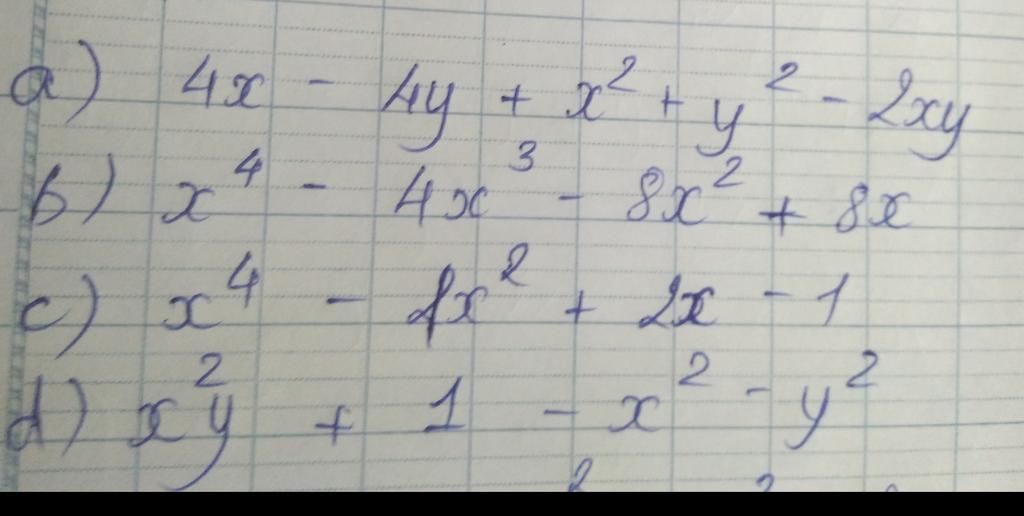 a) 4x - 4y + x² + y² - 2xy
b) x⁴ - 4x³ - 8x² + 8x
c) x⁴ - x² + 2x - 1
d) x²y + 1 - x² - y²